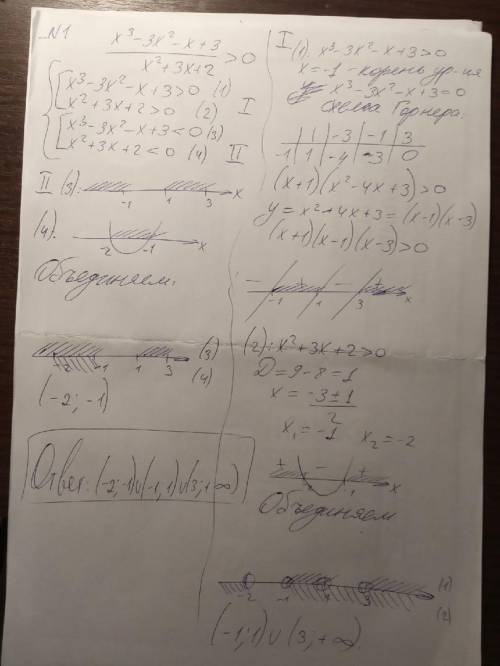 №1
x³-3x²-x+3 / x²+3x+2 > 0
x³-3x²-x+3>0 (1)
x²+3x+2>0 (2) I
x³-3x²-x+3<0 (3)
x²+3x+2<0 (4) II
II (3):
-1 1 3 x
(4).
-2 -1 x
Объединяем:
-2 -1 1 3 (3)
(4)
(-2; -1)
Ответ: (-2;-1)∪(-1;1)∪(3;+∞)
I (1). x³-3x²-x+3>0
x=-1 - корень ур-ия
x³-3x²-x+3=0
схема Горнера:
1 -3 -1 3
-1 1 -4 3 0
(x+1)(x²-4x+3)>0
y=x²+4x+3=(x-1)(x-3)
(x+1)(x-1)(x-3)>0
- + - +
-1 1 3 x
(2): x²+3x+2>0
D=9-8=1
x = -3±1 / 2
x₁=-1 x₂=-2
+ - +
x
Объединяем
-2 -1 1 3 (1)
(2)
(-1;1)∪(3;+∞).